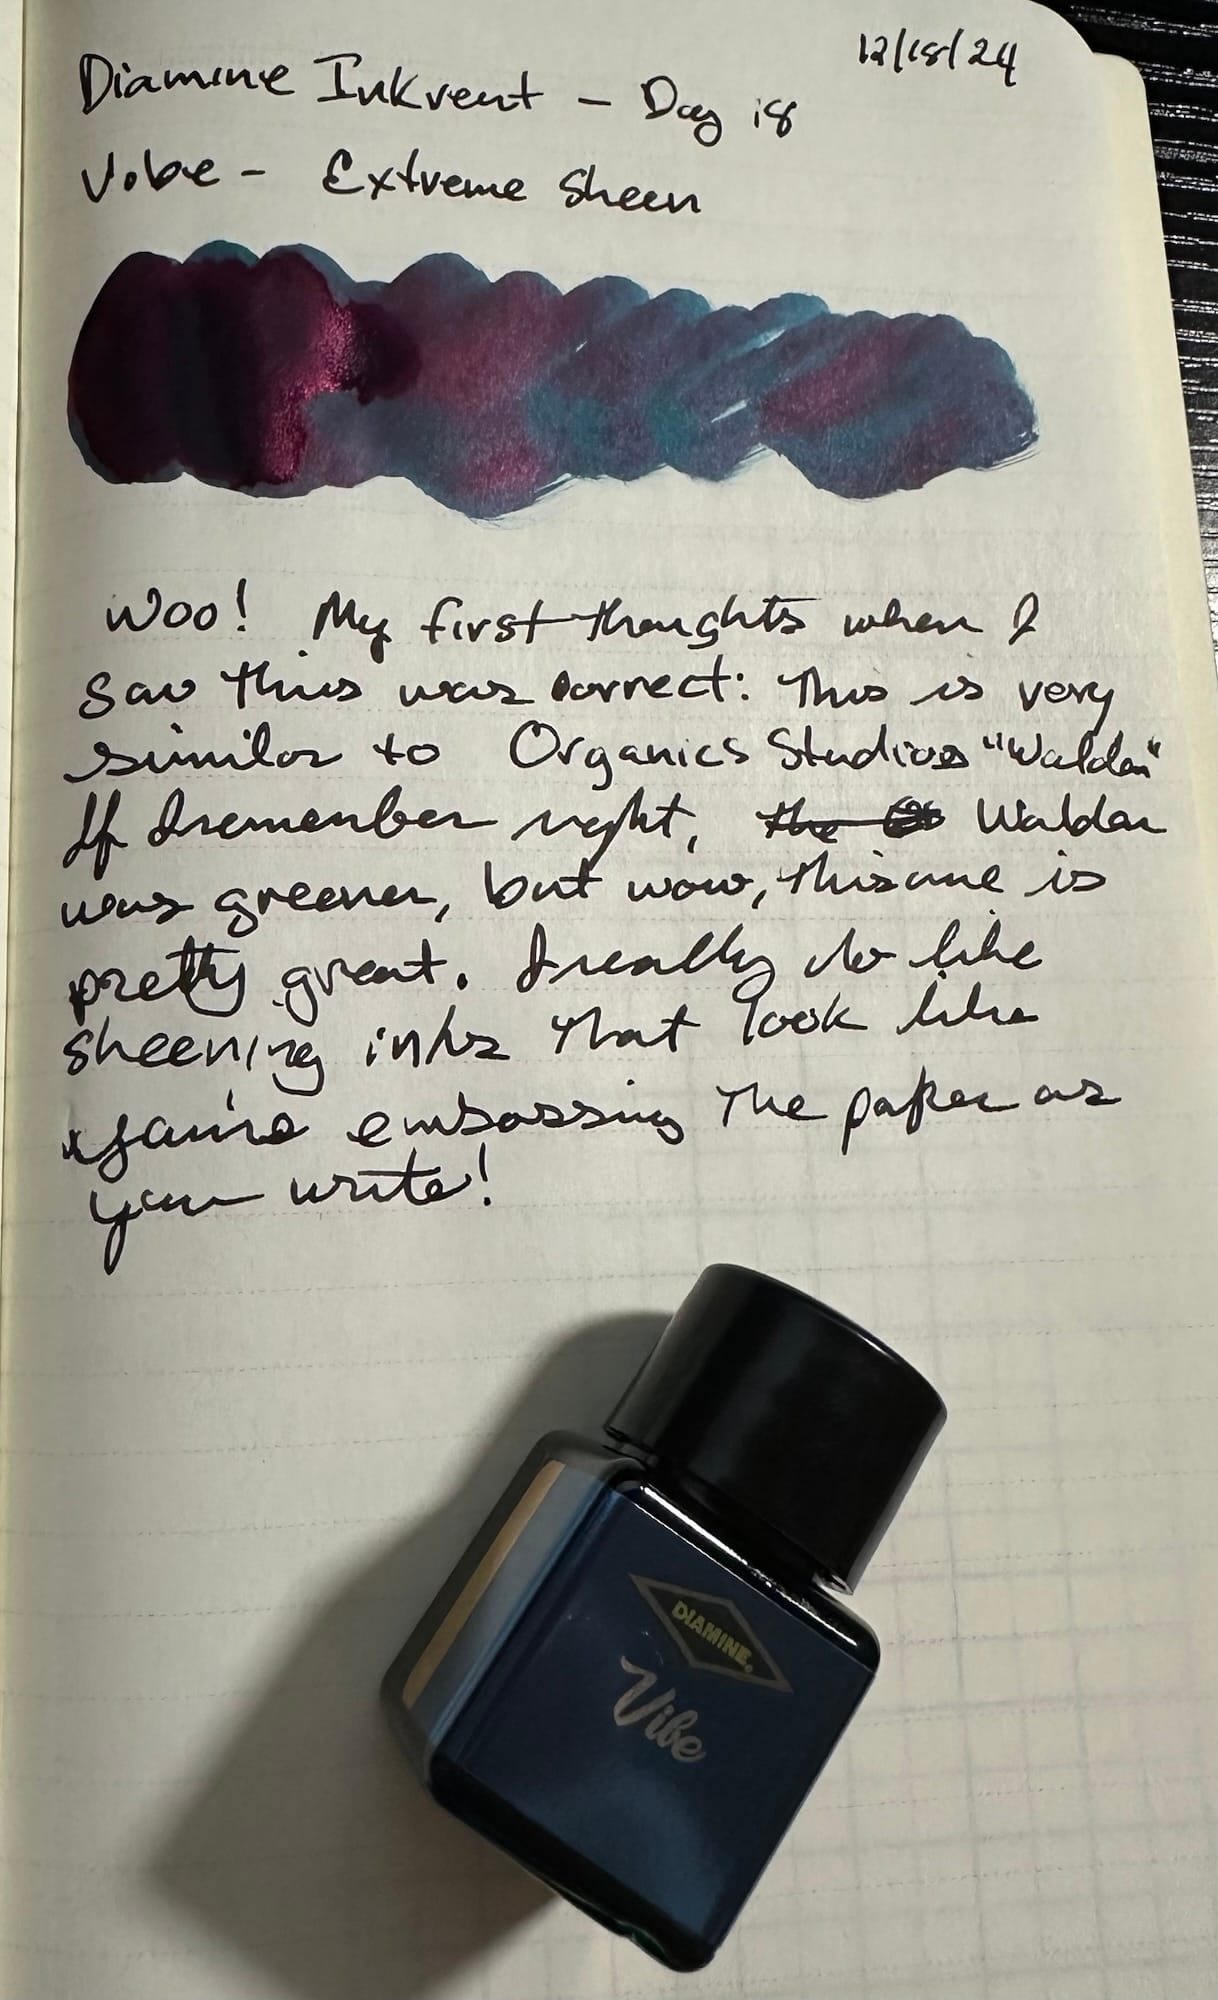 12/18/24
Diamine Inkvent - Day 18
Vibe - Extreme Sheen
Woo! My first thoughts when I
saw this was correct: This is very
similar to Organics Studios "Walden"
If I remember right, the Walden
was greener, but wow, this one is
pretty great. I really do like
sheening inks that look like
you're embossing the paper as
you write!
DIAMINE.
Vibe